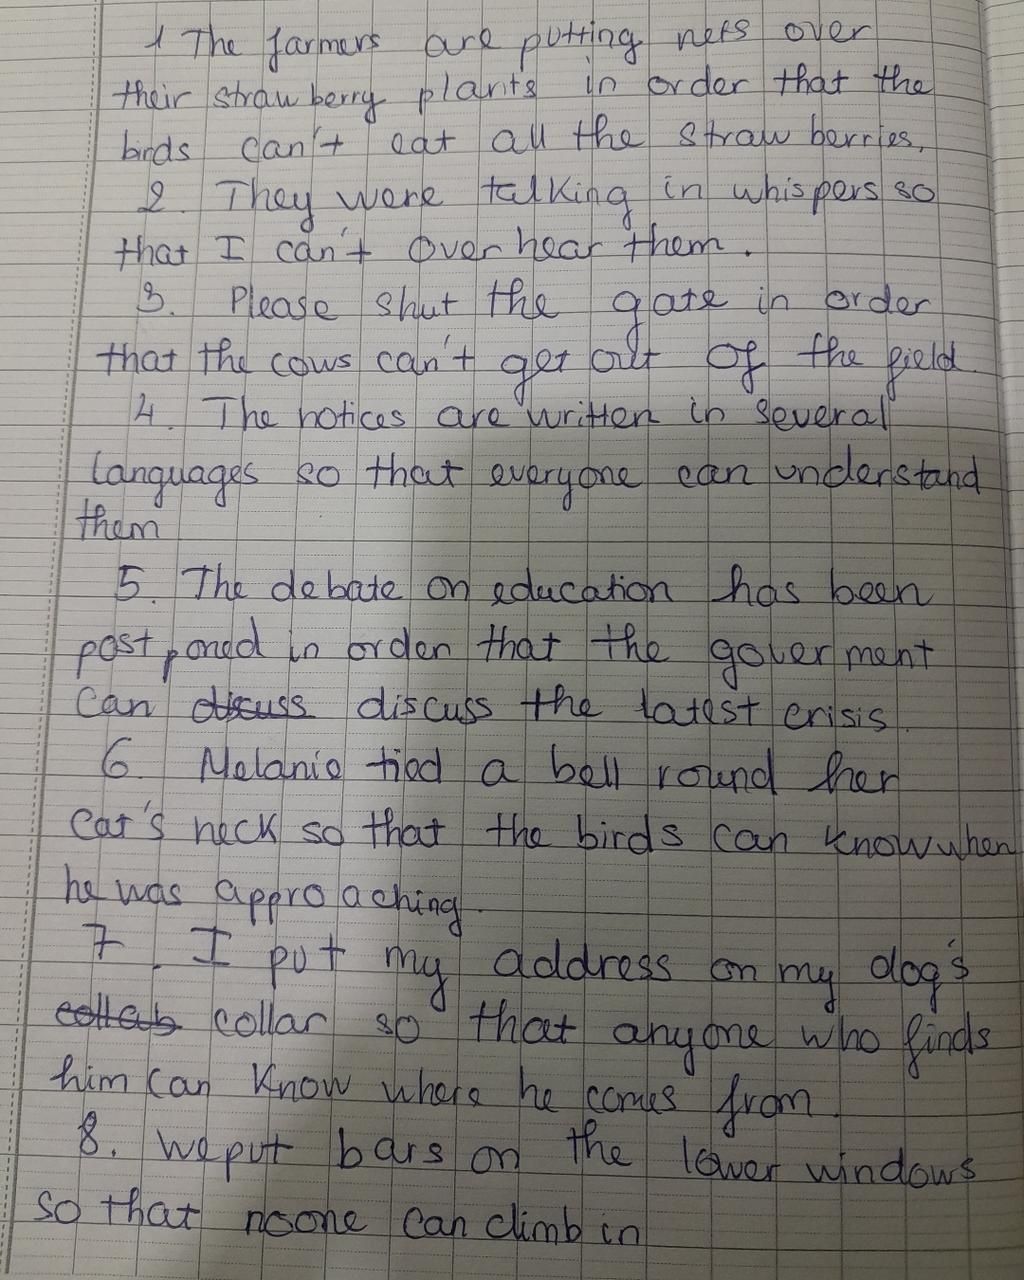 1 The farmers are putting nets over
their strawberry plants in order that the
birds can't eat all the strawberries.
2. They were talking in whispers so
that I can't overhear them.
3. Please shut the gate in order
that the cows can't get out of the field.
4. The notices are written in several
languages so that everyone can understand
them
5. The debate on education has been
postponed in order that the goverment
can discuss discuss the latest crisis.
6. Melanie tied a bell round her
cat's neck so that the birds can know when
he was approaching.
7. I put my address on my dog's
collab collar so that anyone who finds
him can know where he comes from.
8. We put bars on the lower windows
so that noone can climb in